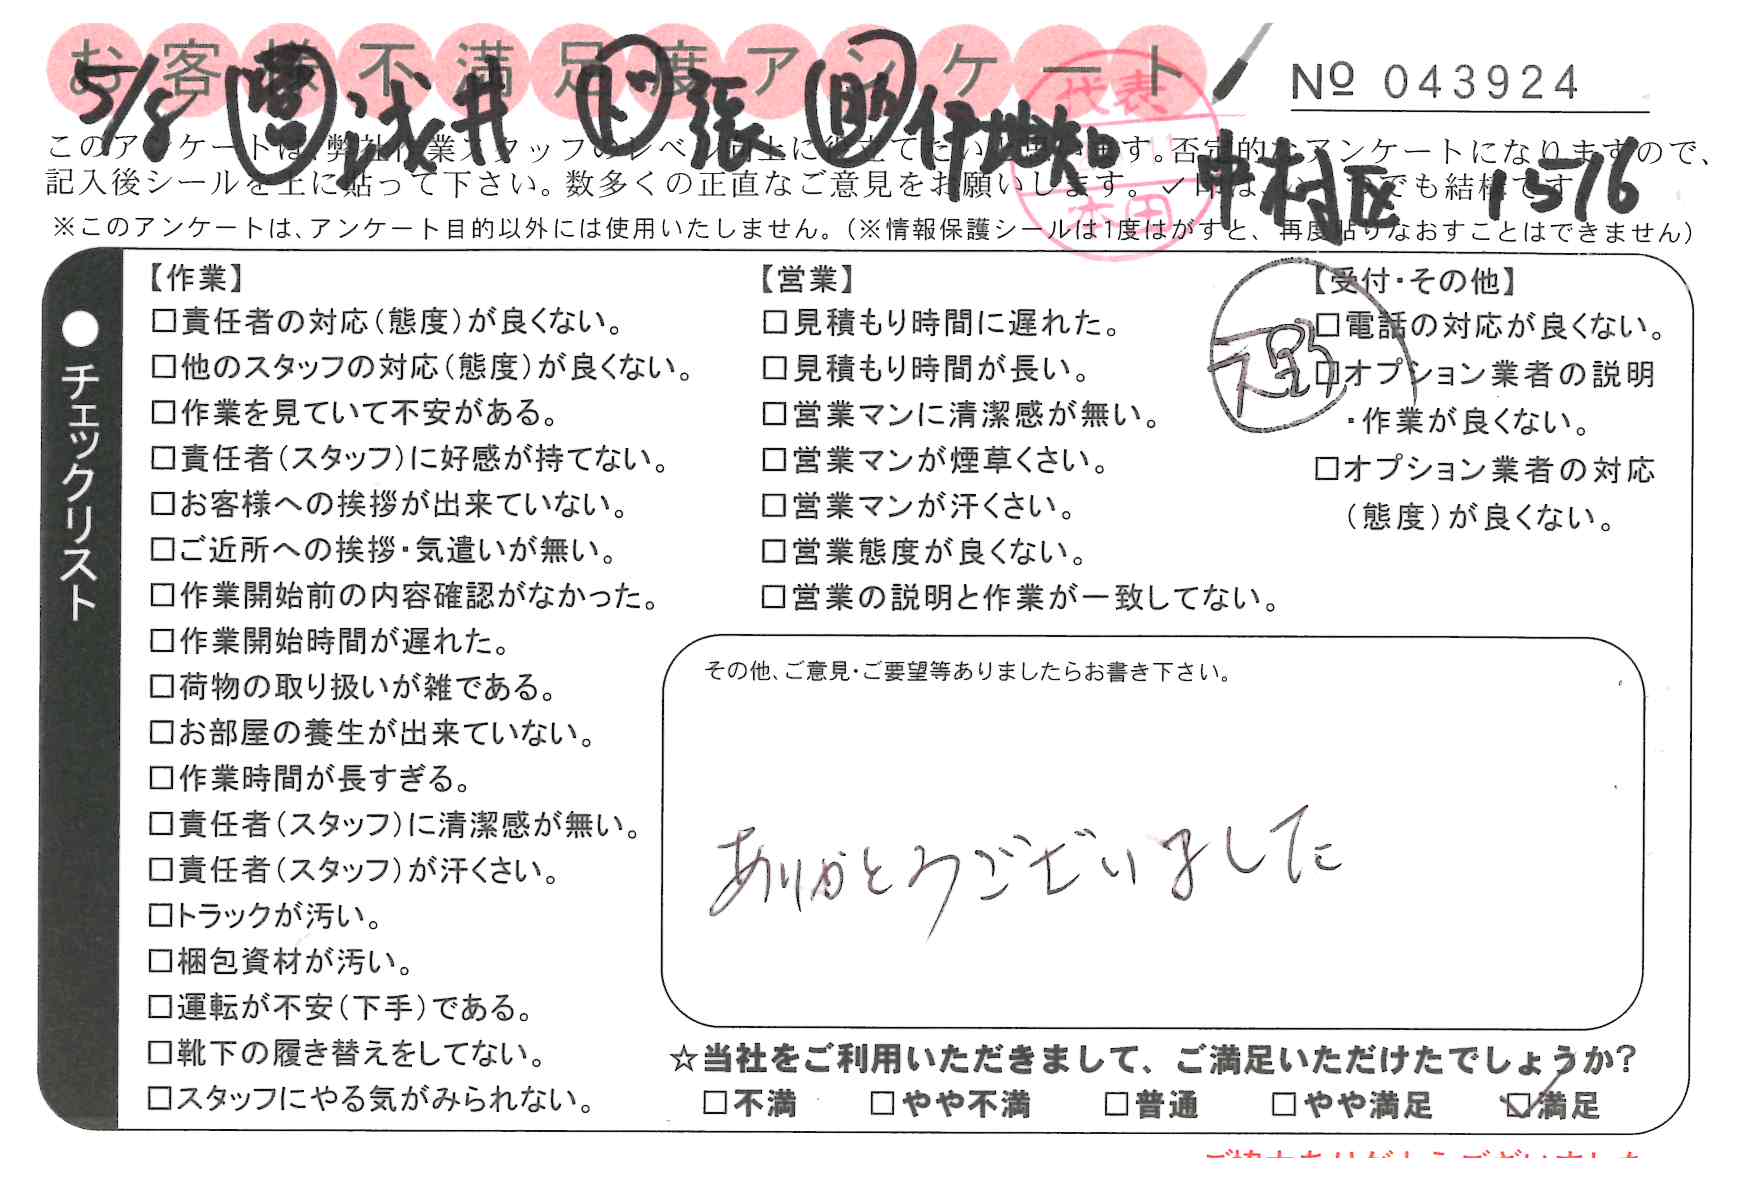 お客様不満足度アンケート
№ 043924
5/8 営 浅井 ド 張 助 伊地知 中村区 1576
代表
本田
このアンケートは、弊社作業スタッフのレベル向上に役立てたいと思います。否定的なアンケートになりますので、
記入後シールを上に貼って下さい。数多くの正直なご意見をお願いします。✓印は、いくつでも結構です。
※このアンケートは、アンケート目的以外には使用いたしません。(※情報保護シールは1度はがすと、再度貼りなおすことはできません)
●チェックリスト
【作業】
□責任者の対応(態度)が良くない。
□他のスタッフの対応(態度)が良くない。
□作業を見ていて不安がある。
□責任者(スタッフ)に好感が持てない。
□お客様への挨拶が出来ていない。
□ご近所への挨拶・気遣いが無い。
□作業開始前の内容確認がなかった。
□作業開始時間が遅れた。
□荷物の取り扱いが雑である。
□お部屋の養生が出来ていない。
□作業時間が長すぎる。
□責任者(スタッフ)に清潔感が無い。
□責任者(スタッフ)が汗くさい。
□トラックが汚い。
□梱包資材が汚い。
□運転が不安(下手)である。
□靴下の履き替えをしてない。
□スタッフにやる気がみられない。
【営業】
□見積もり時間に遅れた。
□見積もり時間が長い。
□営業マンに清潔感が無い。
□営業マンが煙草くさい。
□営業マンが汗くさい。
□営業態度が良くない。
□営業の説明と作業が一致してない。
【受付・その他】
□電話の対応が良くない。
□オプション業者の説明
・作業が良くない。
□オプション業者の対応
(態度)が良くない。
その他、ご意見・ご要望等ありましたらお書き下さい。
ありがとうございました
☆当社をご利用いただきまして、ご満足いただけたでしょうか?
□不満 □やや不満 □普通 □やや満足 ☑満足
ご協力ありがとうございました